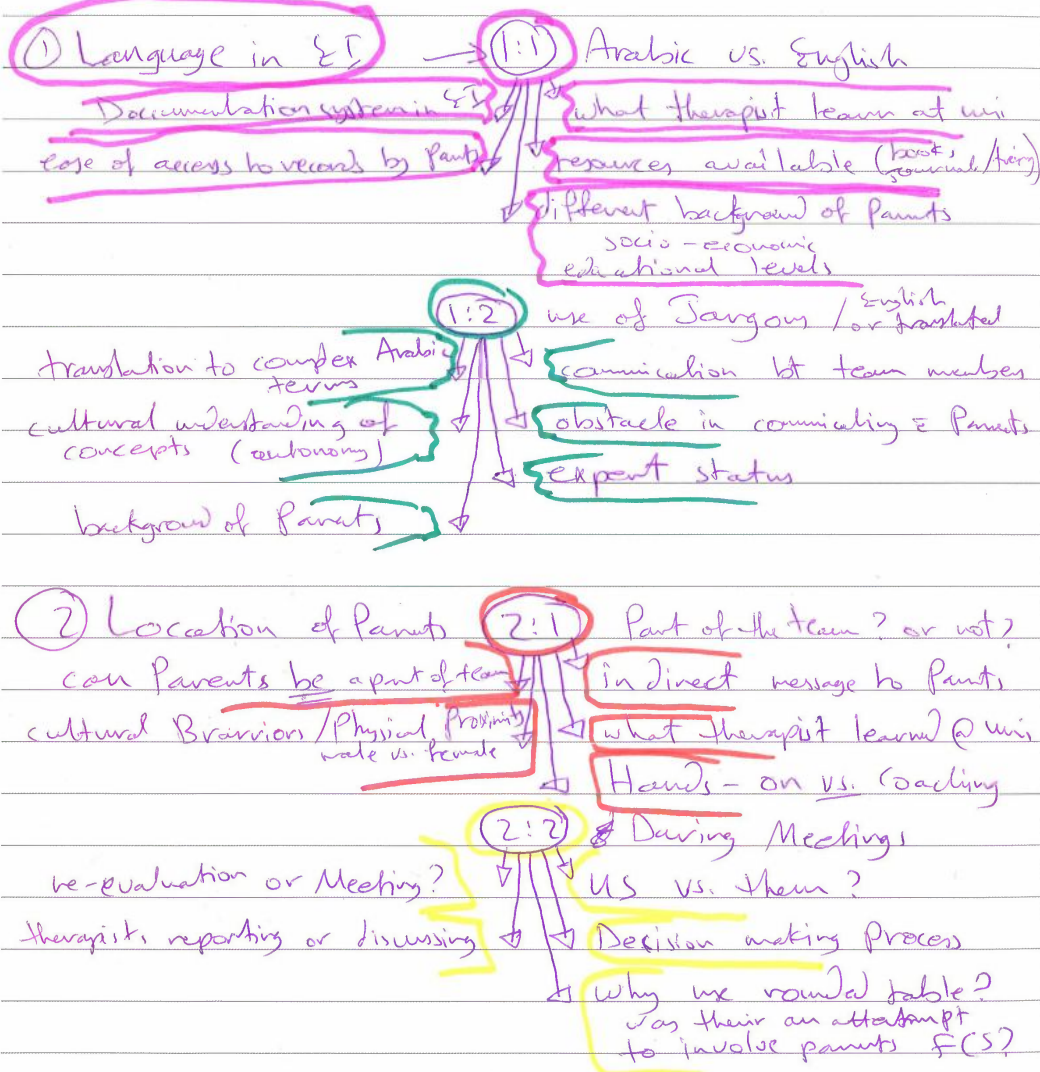 ① Language in EI → 1:1 Arabic vs. English
Documentation system in EI
what therapist learn at uni
ease of access to records by Parents
resources available (books, journals/training)
different background of Parents
socio-economic
educational levels
1:2 use of Jargons / English or translated
translation to complex Arabic terms
commication bt team members
cultural understanding of concepts (autonomy)
obstacle in commicating c Parents
expert status
background of Parents
② Location of Parents 2:1 Part of the team? or not?
can Parents be a part of team
indirect message to Parents
cultural Brarriors/Physical Proximity
male vs. female
what therapist learned @ uni
Hands-on vs. Coaching
2:2 During Meetings
re-evaluation or Meeting?
US vs. them?
therapists reporting or discussing
Decision making Process
Why use rounded table?
was their an attatempt
to involve parents FCS?